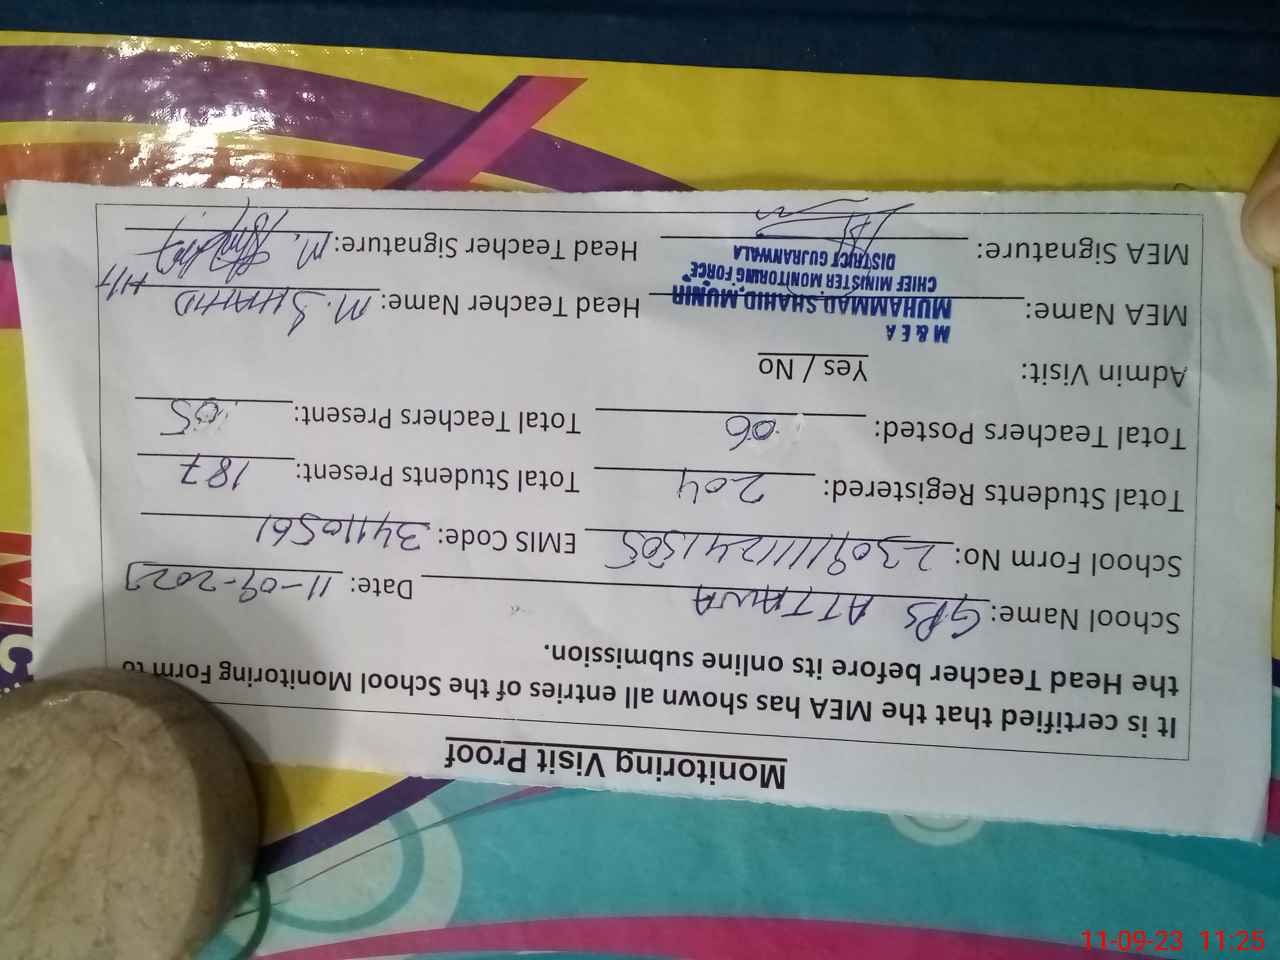 Monitoring Visit Proof
It is certified that the MEA has shown all entries of the School Monitoring Form to
the Head Teacher before its online submission.
School Name: GPS ATTAWA Date: 11-09-2023
School Form No: 23091111241505 EMIS Code: 34110561
Total Students Registered: 204 Total Students Present: 187
Total Teachers Posted: 06 Total Teachers Present: 05
Admin Visit: Yes / No
M & E A
MEA Name: MUHAMMAD SHAHID MUNIR Head Teacher Name: M. SHAHID
CHIEF MINISTER MONITORING FORCE
DISTRICT GUJRANWALA
MEA Signature: Head Teacher Signature: M.
11-09-23 11:25